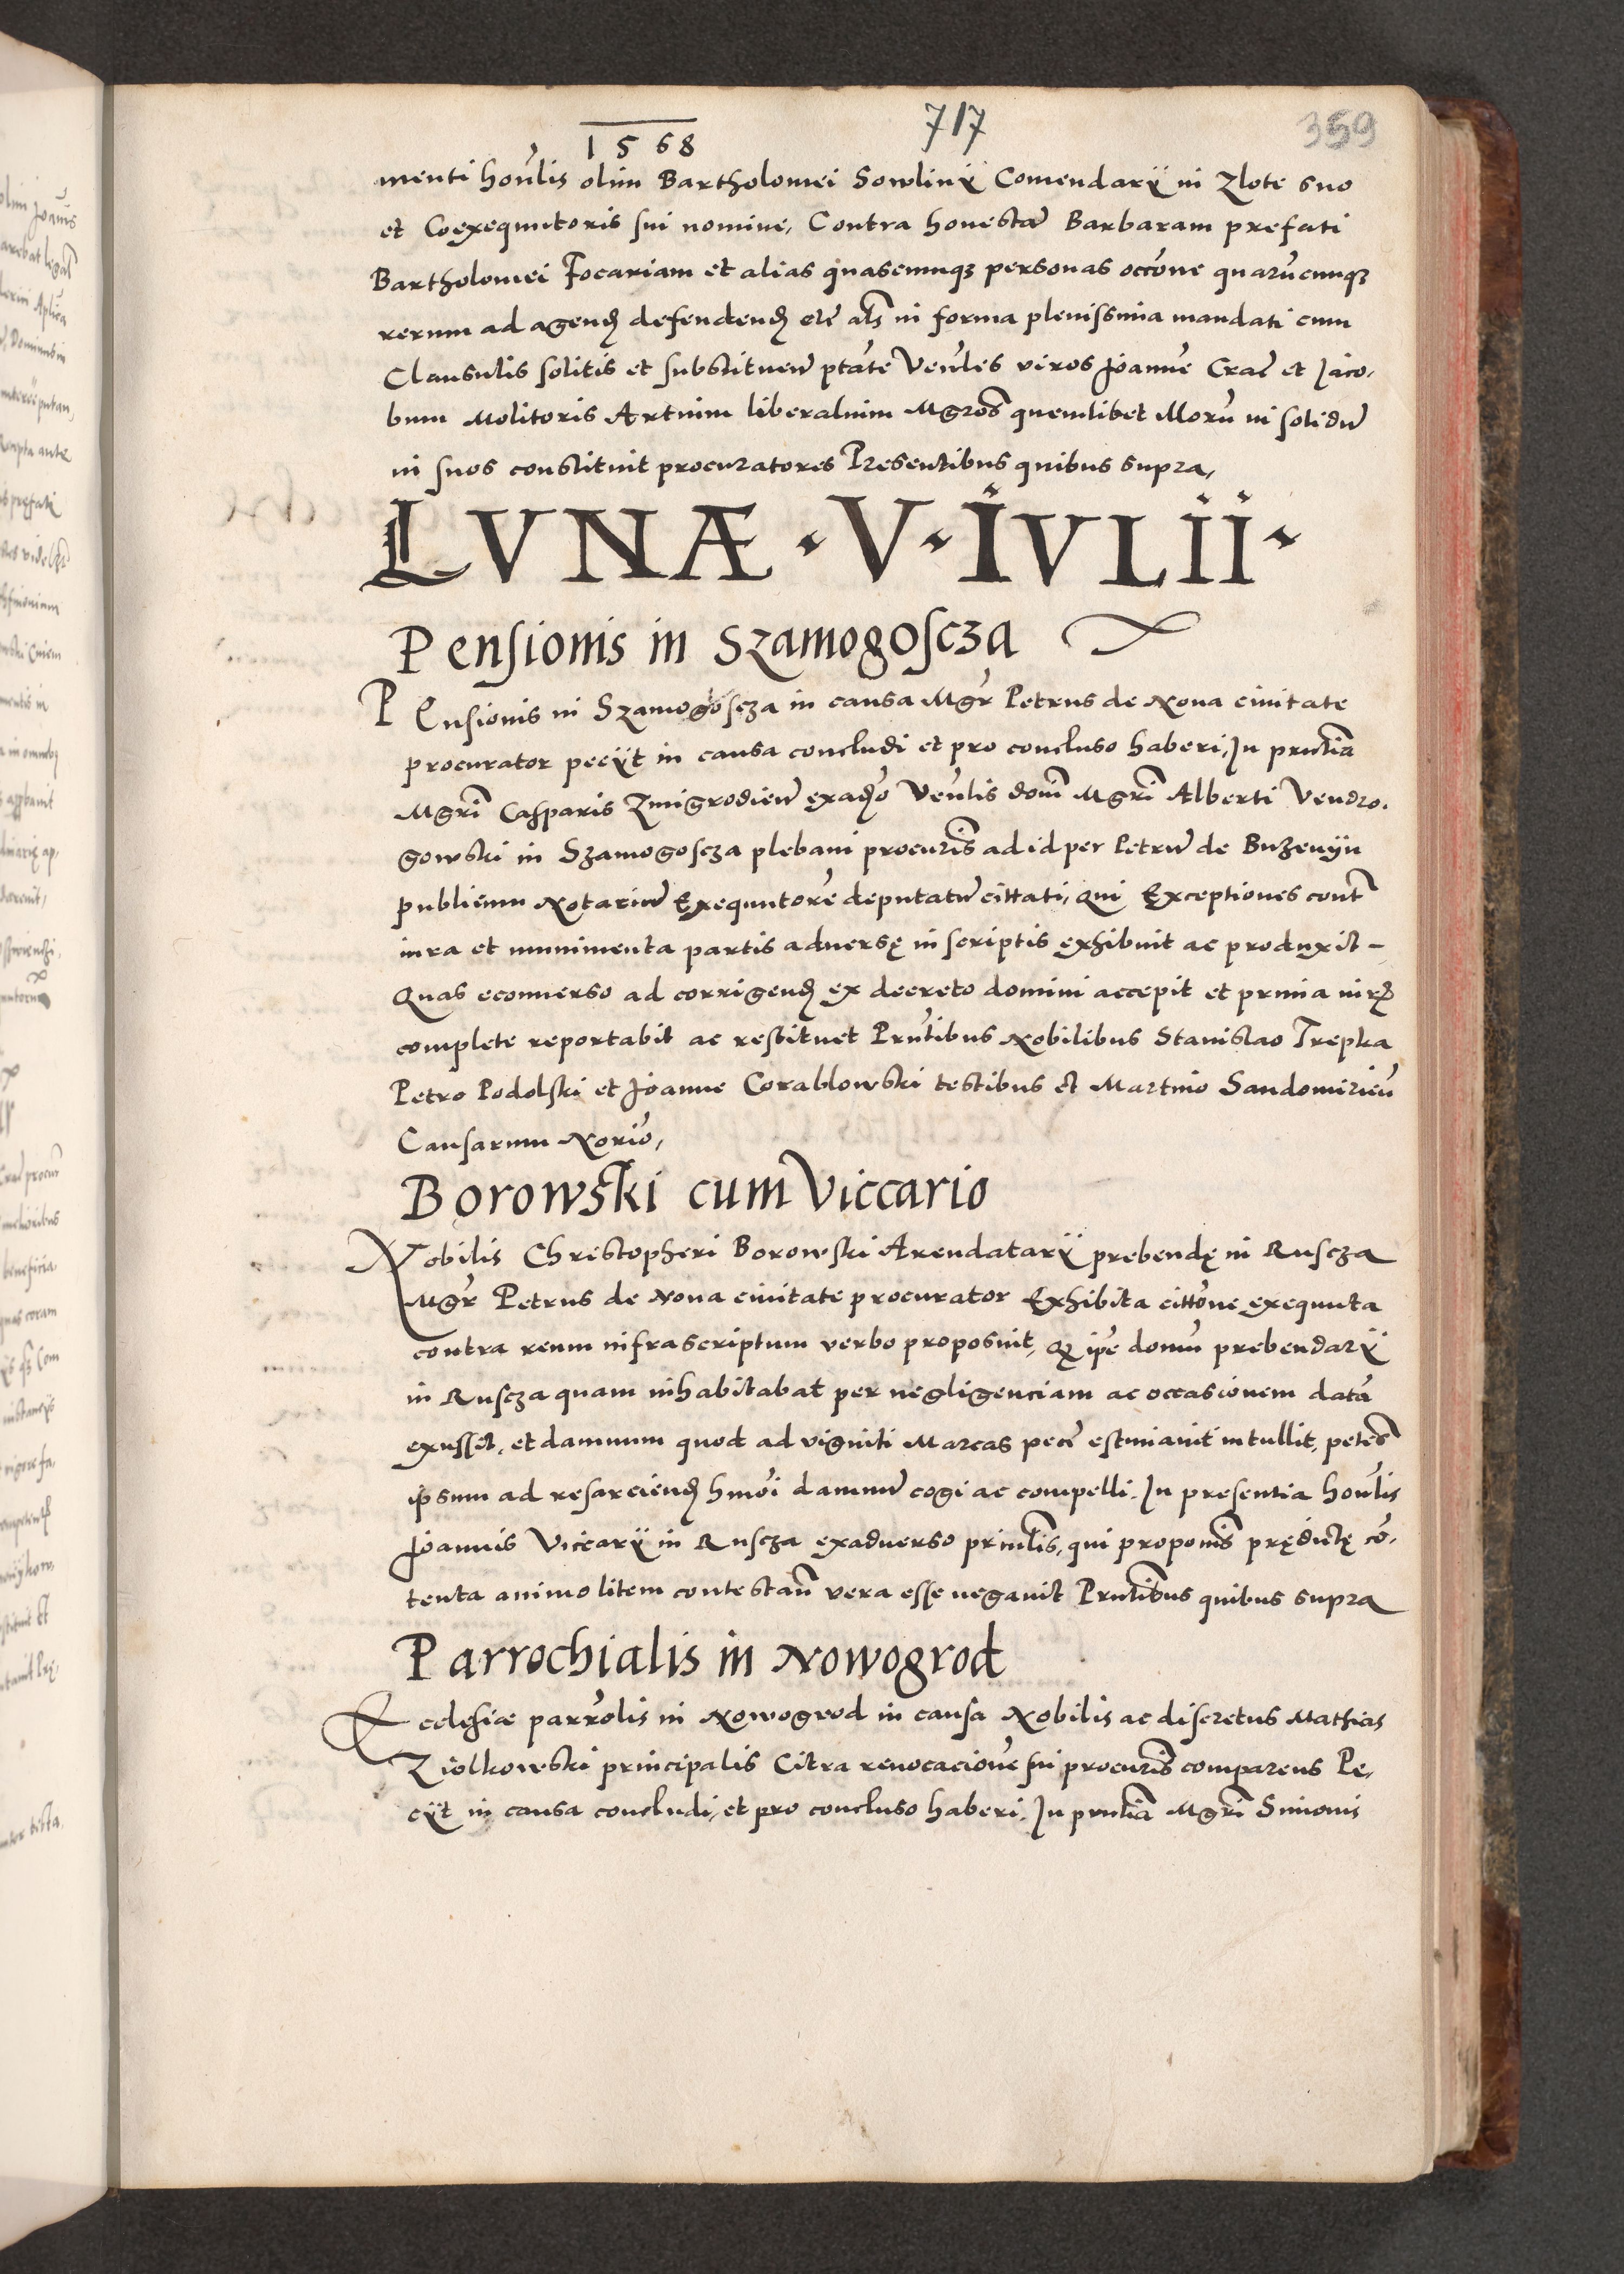 1568
717
359
menti hon͂lis olim Bartholomei Sowlinÿ Comendarÿ in Zlote suo
et Coexequutoris sui nomine, Contra honestã Barbaram prefati
Bartholomei Focariam et alias quascunqꝫ personas occõne quarũcunqꝫ
rerum ad agend defendend als in forma plenissima mandati cum
Clausulis solitis et substituen̄ ptãte Ven͂les viros Joannẽ Crac̄ et Jaco,
bum Molitoris Artium liberalium Mgros̄ quemlibet illorũ in solidũ
in suos constituit procuratores Presentibus quibus supra,
LVNÆ · V · IVLII ·
Pensionis in Szamogoscza
PEnsionis in Szamogoscza in causa Mgr̄ Petrus de Noua ciuitate
procurator pecÿt in causa concludi et pro concluso haberi, In prntia͂
Mgri͂ Casparis Zmigrodien̄ exadṽo Ven͂lis dom͂ Mgri͂ Alberti Vendro,
gowski in Szamogoscza plebani procuris͂ ad id per Petrũ de Buzenÿn
publicum Notariũ Exequutorẽ deputatũ cittati, qui Exceptiones cont͂
iura et munimenta partis aduersę in scriptis exhibuit ac produxit –
Quas econuerso ad corrigend ex decreto domini accepit et prima iurͥd
complete reportabit ac restituet Prn͂tibus Nobilibus Stanislao Trepka
Petro Podolski et Joanne Corablowski testibus et Martino Sandomirien̄
Causarum Norio͂,
Borowski cum Viccario
Nobilis Christopheri Borowski Arendatarÿ prebendę in Ruscza
Mgr̄ Petrus de Noua ciuitate procurator Exhibita cittõne exequuta
contra reum infrascriptum verbo proposuit, Qꝫ ip̃e domũ prebendarÿ
in Ruscza quam inhabitabat per negligenciam ac occasionem datã
exusset, et damnum quod ad viginti Marcas pec̃ estimauit intullit, petes͂
ipsum ad resarciend hmõi damnũ cogi ac compelli. In presentia hon͂lis
Joannis Viccarÿ in Ruscza exaduerso prin͂lis, qui proponis͂ prędictę cõ,
tenta animo litem contestan͂ vera esse negauit Prn͂tibus quibus supra
Parrochialis in Nowogrod
Ecclesiæ parro͂lis in Nowogrod in causa Nobilis ac discretus Mathias
Ziolkowski principalis Citra reuocacionẽ sui procuris͂ comparens Pe,
cÿt in causa concludi, et pro concluso haberi. In prntia͂ Mgri͂ Simonis